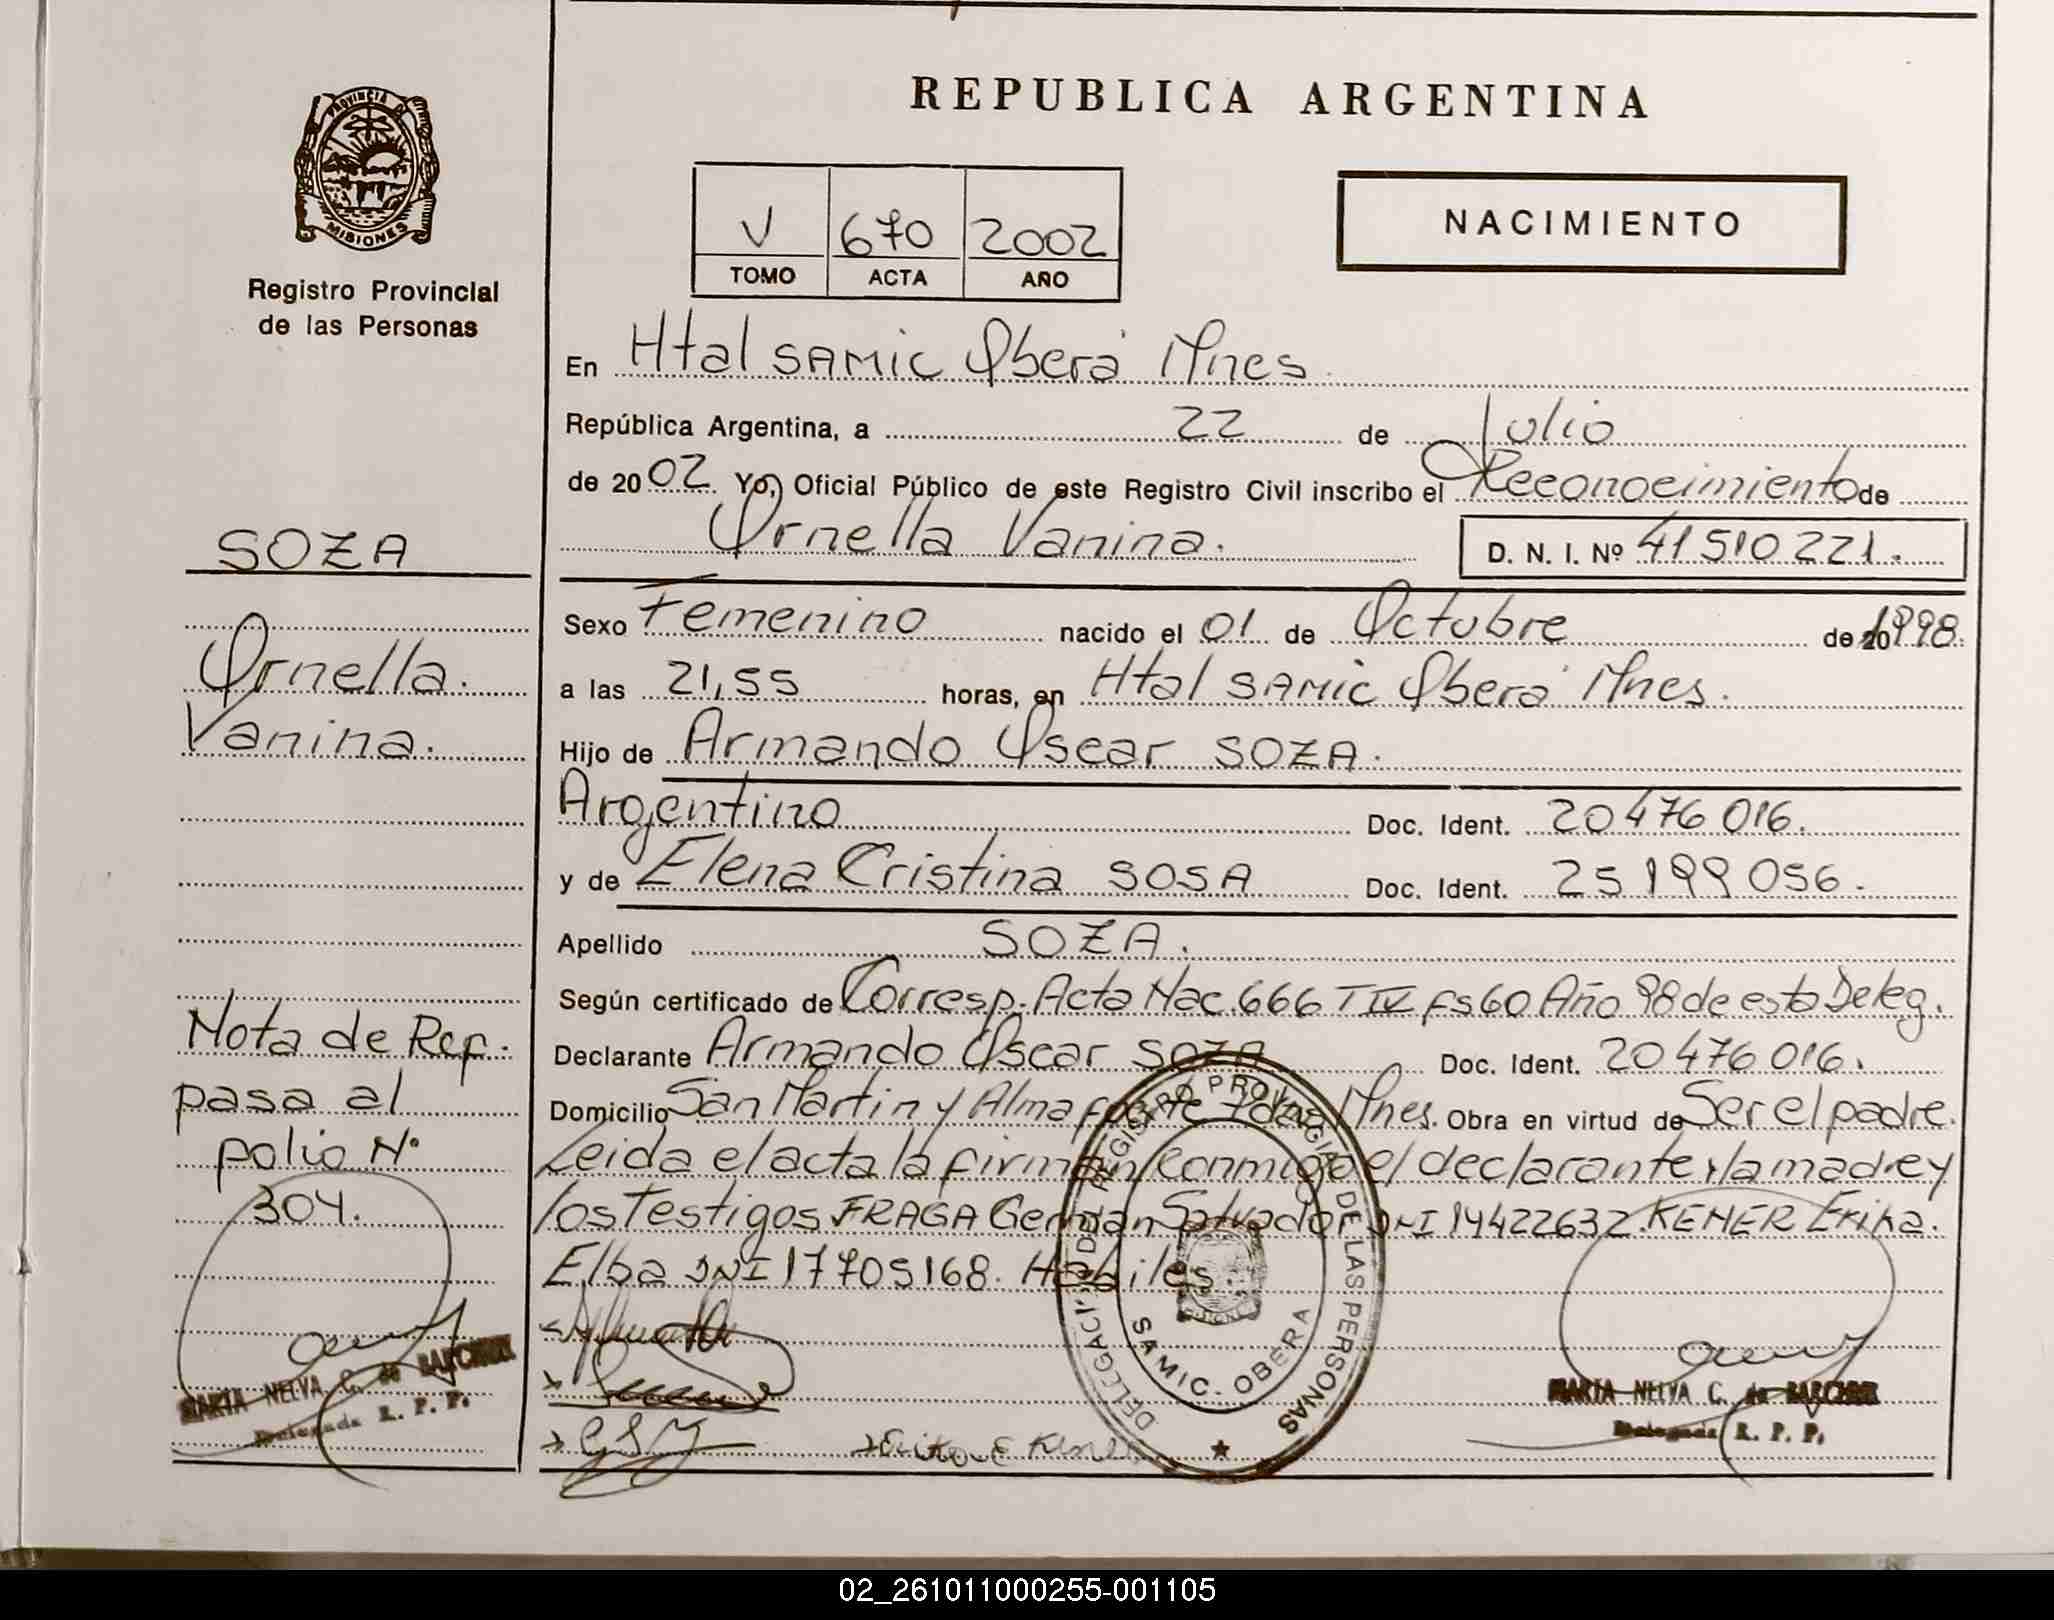 REPUBLICA ARGENTINA
PROVINCIA DE
MISIONES
Registro Provincial
de las Personas
V 670 2002
TOMO ACTA AÑO
NACIMIENTO
En Htal SAMIC Oberá Mnes.
República Argentina, a 22 de Julio
de 2002. Yo, Oficial Público de este Registro Civil inscribo el Reconocimiento de
Ornella Vanina. D. N. I. Nº 41510221.
Sexo Femenino nacido el 01 de Octubre de 20 1998.
a las 21,55 horas, en Htal SAMIC Oberá Mnes.
Hijo de Armando Oscar SOZA.
Argentino Doc. Ident. 20476016.
y de Elena Cristina SOSA Doc. Ident. 25199056.
Apellido SOZA.
Según certificado de Corresp. Acta Nac. 666 T IV Fs 60 Año 98 de esta Deleg.
Declarante Armando Oscar SOZA Doc. Ident. 20476016.
Domicilio San Martin y Almafuerte Mnes. Obra en virtud de Ser el padre.
Leida el acta la firman conmigo el declarante, la madre y
los Testigos FRAGA German Salvador DNI 14422632. KENER Erika.
Elba DNI 17705168. Habiles.
SOZA
Ornella.
Vanina.
Nota de Ref.
pasa al
folio Nº
304.
MARIA NELVA C. de
Delegada R. P. P.
REGISTRO PROVINCIAL DE LAS PERSONAS
SAMIC. OBERA
MARIA NELVA C. de
Delegada R. P. P.
02_261011000255-001105